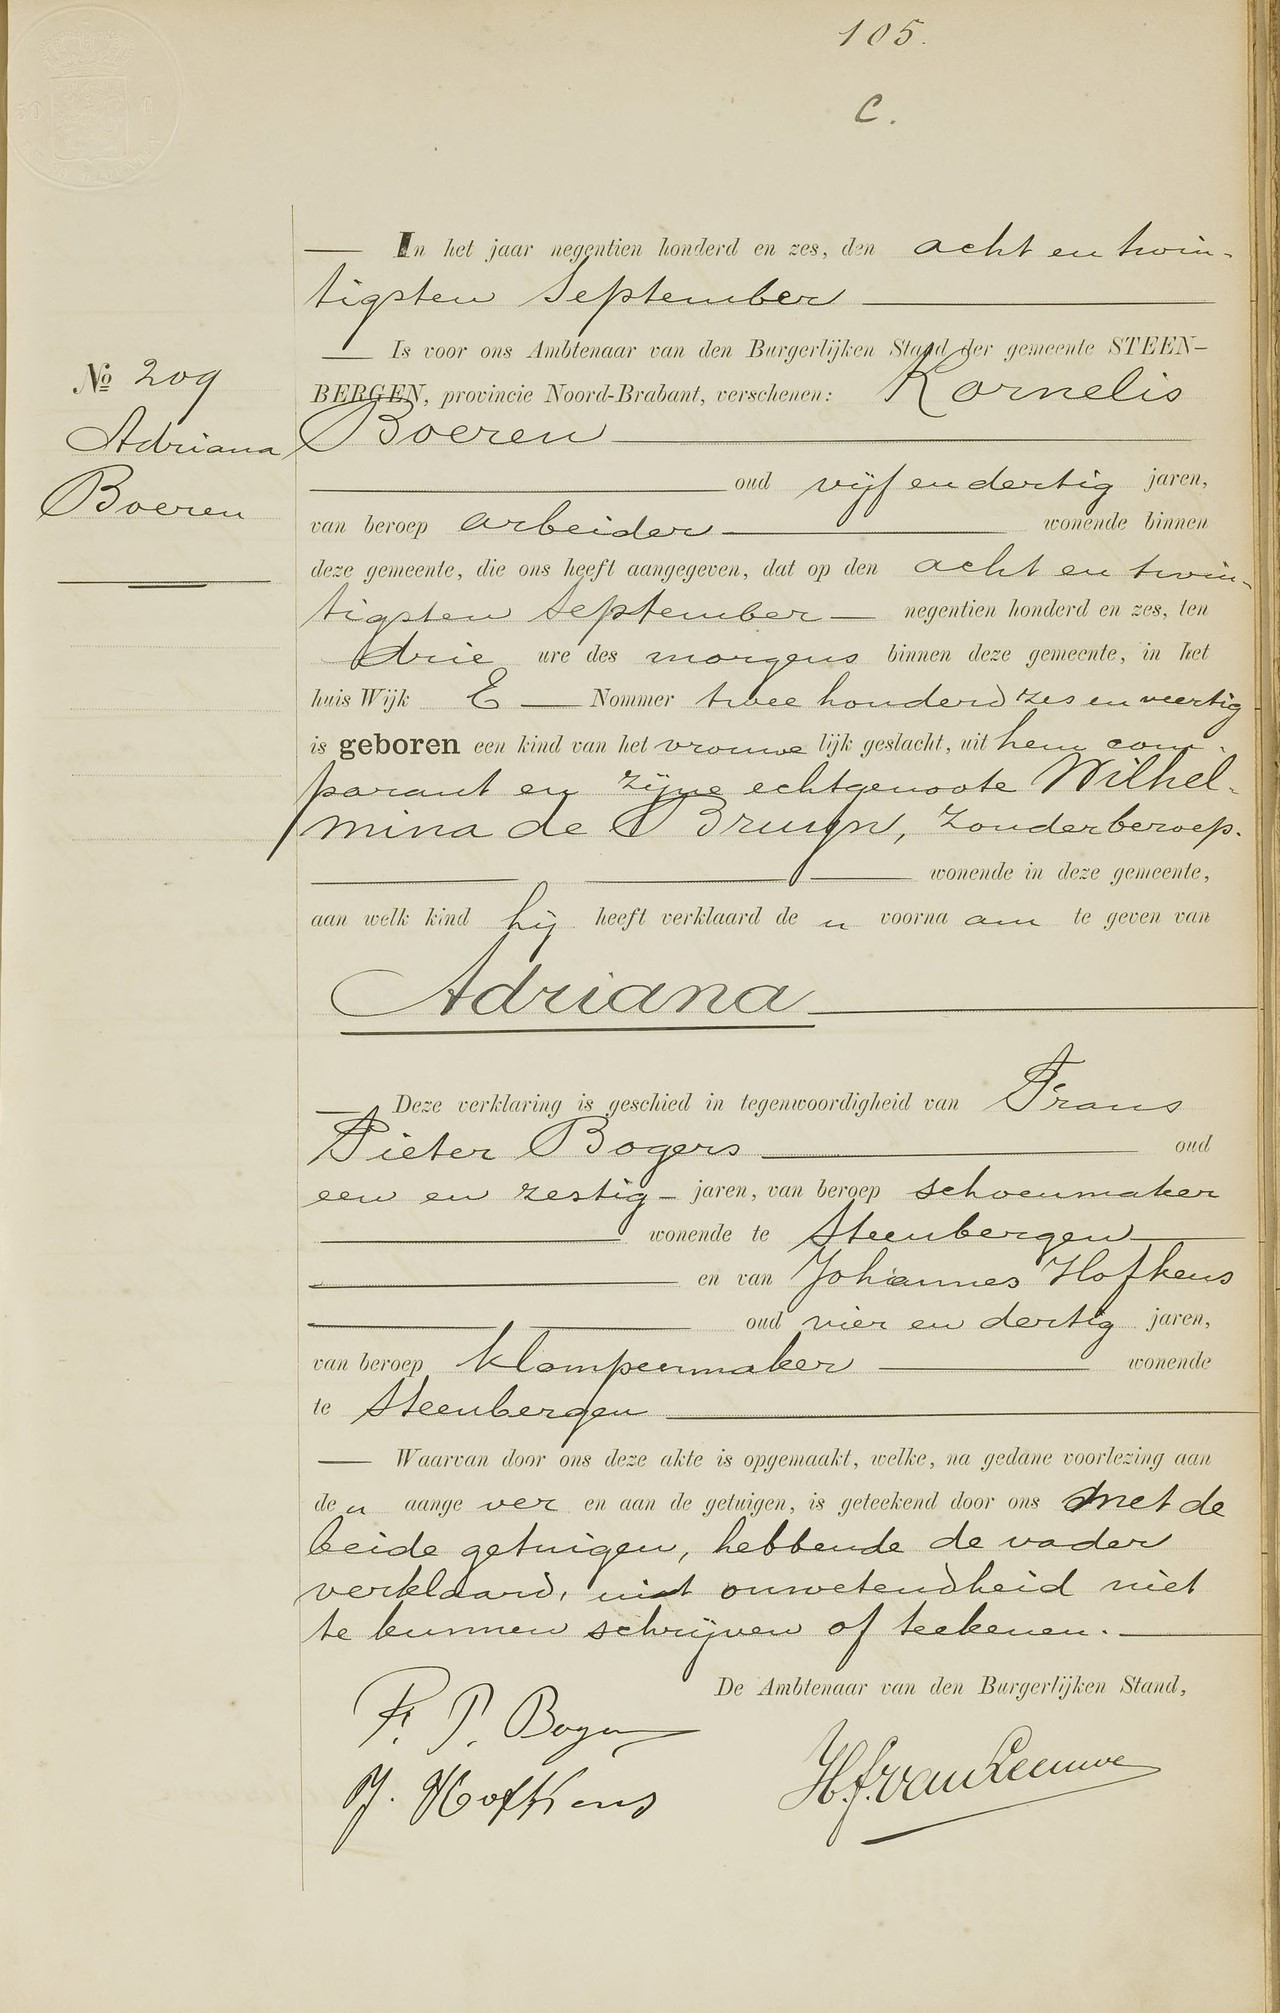 105.
C.
In het jaar negentien honderd en zes, den acht en twin-
tigsten September
Is voor ons Ambtenaar van den Burgerlijken Stand der gemeente STEEN-
BERGEN, provincie Noord-Brabant, verschenen: Kornelis
Boeren
oud vijf en dertig jaren,
van beroep arbeider wonende binnen
deze gemeente, die ons heeft aangegeven, dat op den acht en twin-
tigsten September negentien honderd en zes, ten
drie ure des morgens binnen deze gemeente, in het
huis Wijk E Nommer twee honderd zes en veertig
is geboren een kind van het vrouwe lijk geslacht, uit hem com-
parant en zijne echtgenoote Wilhel-
mina de Bruijn, zonder beroep.
wonende in deze gemeente,
aan welk kind hij heeft verklaard de n voorna am te geven van
Adriana
Deze verklaring is geschied in tegenwoordigheid van Frans
Pieter Bogers oud
een en zestig jaren, van beroep schoenmaker
wonende te Steenbergen
en van Johannes Hofkens
oud vier en dertig jaren,
van beroep klompenmaker wonende
te Steenbergen
Waarvan door ons deze akte is opgemaakt, welke, na gedane voorlezing aan
de n aange ver en aan de getuigen, is geteekend door ons met de
beide getuigen, hebbende de vader
verklaard, uit onwetendheid niet
te kunnen schrijven of teekenen.
De Ambtenaar van den Burgerlijken Stand,
F. P. Bogers
J. Hofkens
H.J. van Leeuwe
No 209
Adriana
Boeren